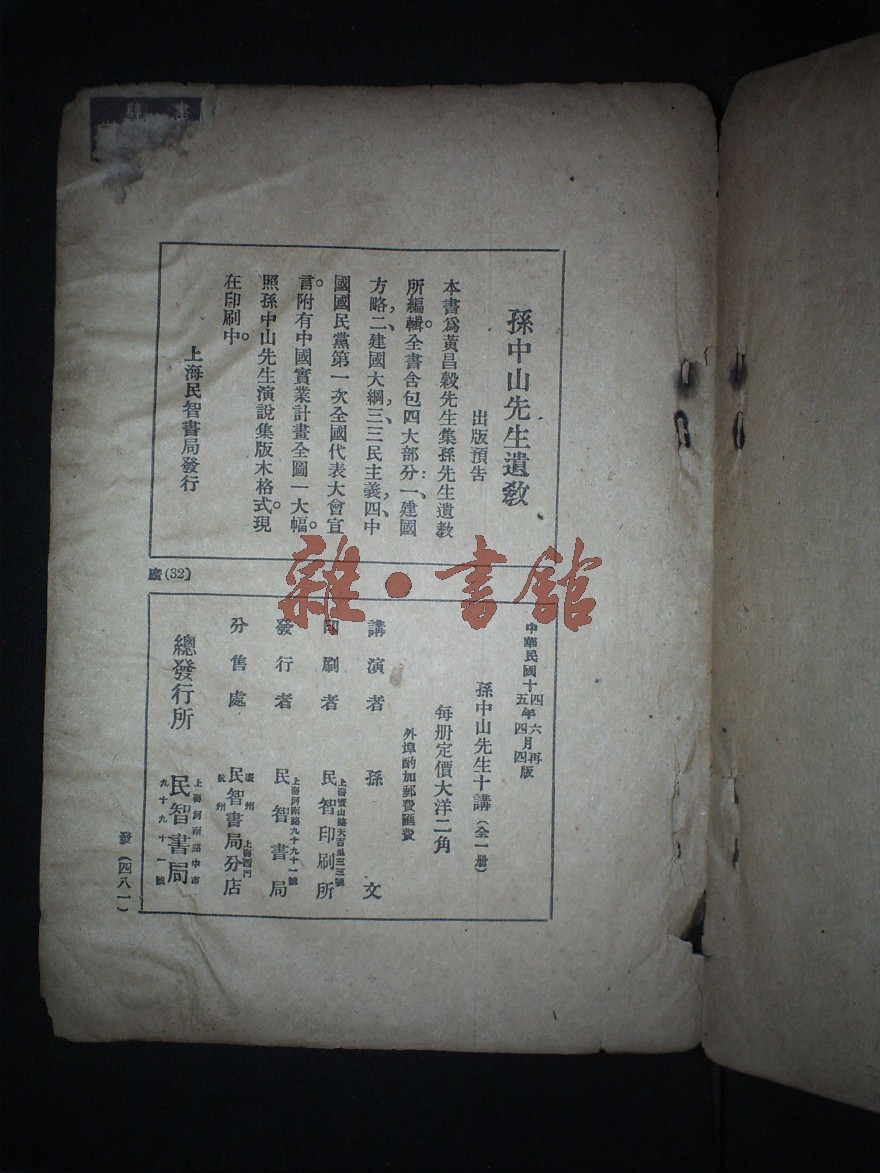 孫中山先生遺敎
出版預告
本書爲黃昌穀先生集孫先生遺敎
所編輯。全書含包四大部分：一、建國
方略，二、建國大綱，三、三民主義，四、中
國國民黨第一次全國代表大會宣
言。附有中國實業計畫全圖一大幅。
照孫中山先生演說集版木格式。現
在印刷中。
上海民智書局發行
(32)
雜·書館
中華民國十四年六月
十五年四月四版
再
孫中山先生十講(全一册)
每册定價大洋二角
外埠酌加郵費匯費
講演者 孫文
印刷者 民智印刷所
發行者 上海河南路九十九十一號 民智書局
分售處 廣州 杭州 上海西門 民智書局分店
總發行所 上海河南路中市 九十九十一號 民智書局
發(四八一)
書